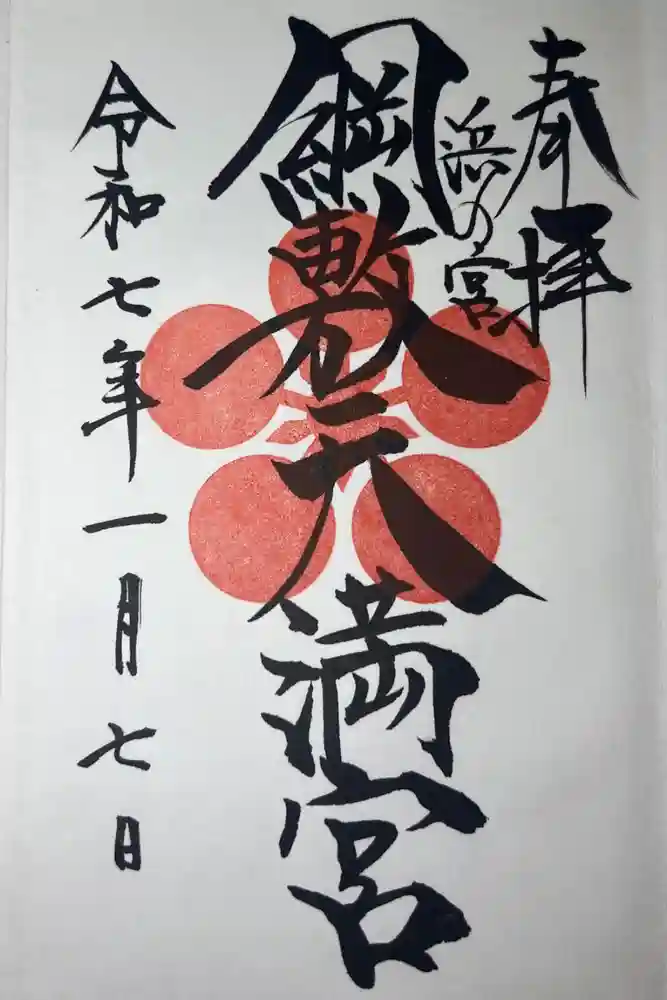 奉拝
浜の宮
綱敷天満宮
令和七年一月七日